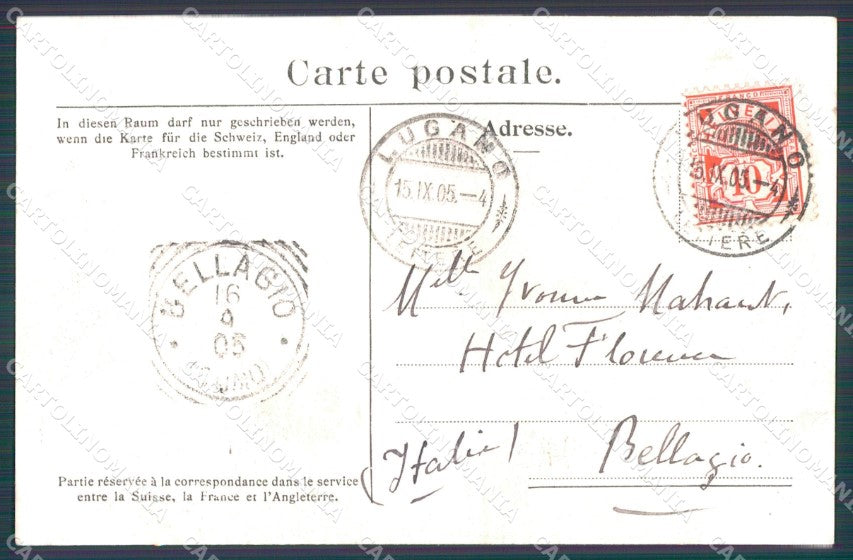 Carte postale.
In diesen Raum darf nur geschrieben werden,
wenn die Karte für die Schweiz, England oder
Frankreich bestimmt ist.
Adresse.
LUGANO
15.IX.05.–4
LUGANO
15.IX.05.–4
FRANCO
10
BELLAGIO
16
9
05
(COMO)
Melle Yvonne Mahaut,
Hotel Florence
Bellagio.
(Italie)
Partie réservée à la correspondance dans le service
entre la Suisse, la France et l'Angleterre.
CARTOLINOMANIA